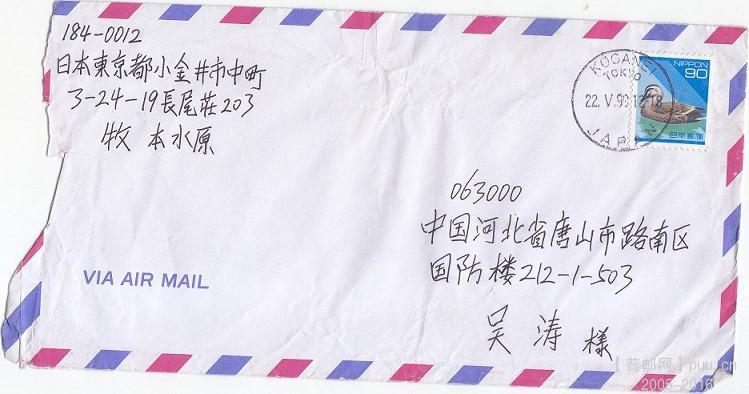 184-0012
日本東京都小金井市中町
3-24-19長尾荘203
牧 本水原
KOGANEI
TOKYO
22.V.99.12-18
JAPAN
NIPPON
90
日本郵便
063000
中国河北省唐山市路南区
国防楼212-1-503
吴 涛 様
VIA AIR MAIL
【普邮网】puu.cn
2005-2016